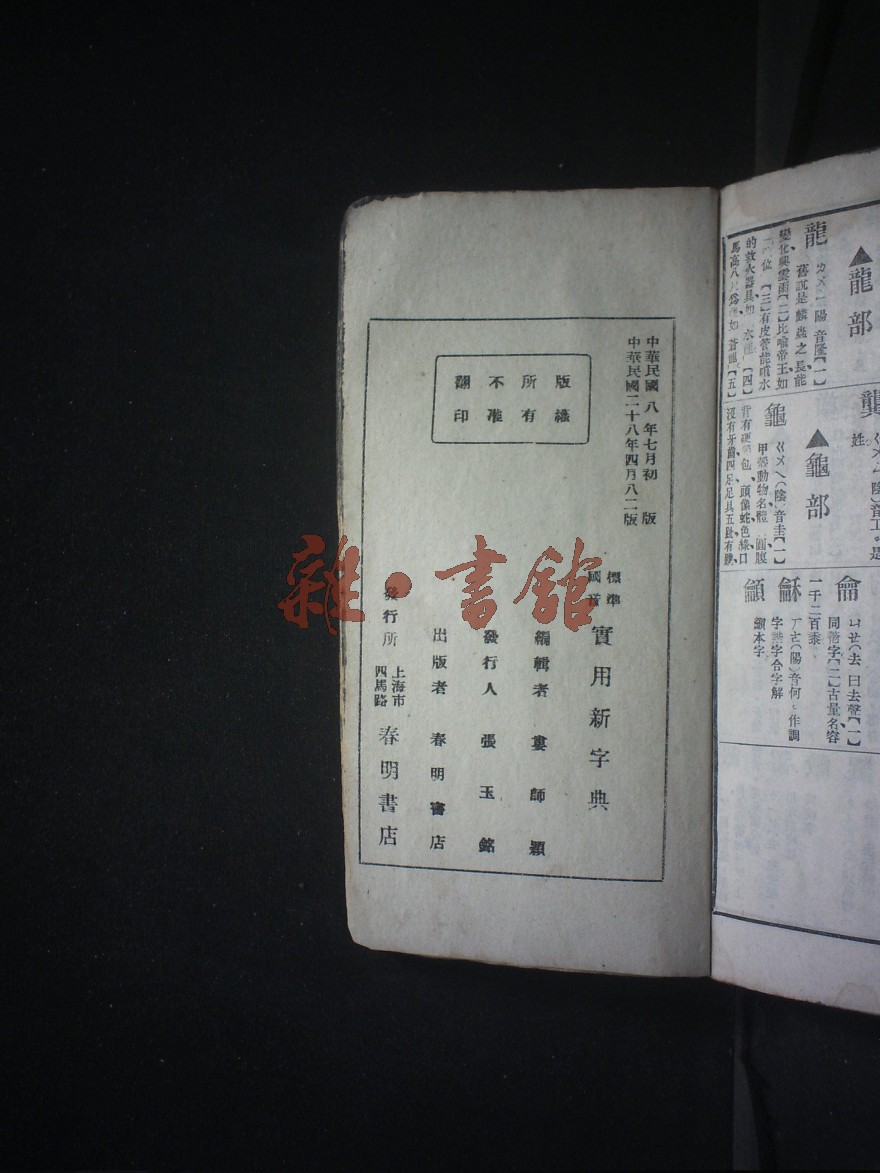 龠
ㄩㄝ(去)曰去聲【一】
同籥字【二】古量名容
一千二百黍
龢
ㄏㄜ(陽)音何
字
龥
籲本字
龔
姓
▲龜部
龜
ㄍㄨㄟ(陰)音圭【一】
甲殼動物名體圓腹
背有硬 包、頭像蛇、色綠、口
沒有牙齒、四足、足具五趾、有
▲龍部
龍
ㄌㄨㄥ陽 音隆【一】
舊說是鱗蟲之長、能
變化興雲雨【二】比喻帝王、如
【三】有皮管能噴水
的救火器具如 水龍【四】
馬高八尺為 如 蒼龍【五】
中華民國八年七月初版
中華民國二十八年四月八二版
版權
所有
不准
翻印
標準
國音
實用新字典
編輯者 婁師顯
發行人 張玉銘
出版者 春明書店
發行所 上海市
四馬路 春明書店
雜·書館